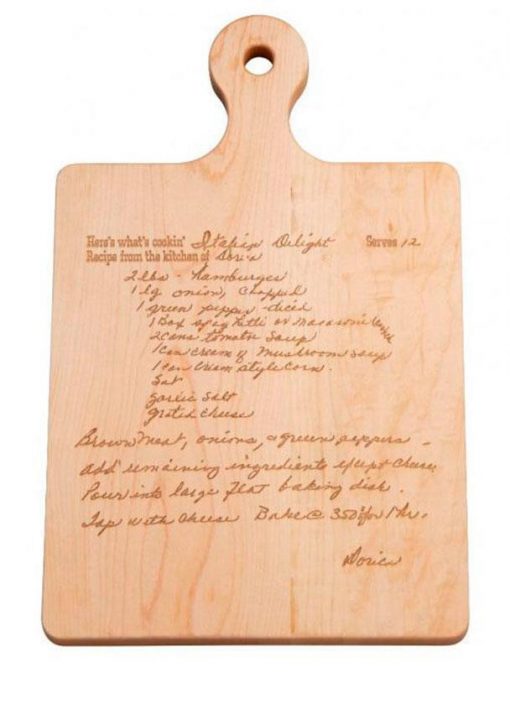 Here's what's cookin' Italian Delight Serves 12
Recipe from the kitchen of Doris
2 lbs. hamburger
1 lg onion, chopped
1 green pepper diced
1 Box spaghetti or macaroni
2 cans tomato soup
1 can cream of mushroom soup
1 can cream style corn.
Salt
garlic salt
grated cheese
Brown meat, onions, & green peppers -
add remaining ingredients except cheese
Pour into large flat baking dish.
Top with cheese Bake @ 350° for 1 hr.